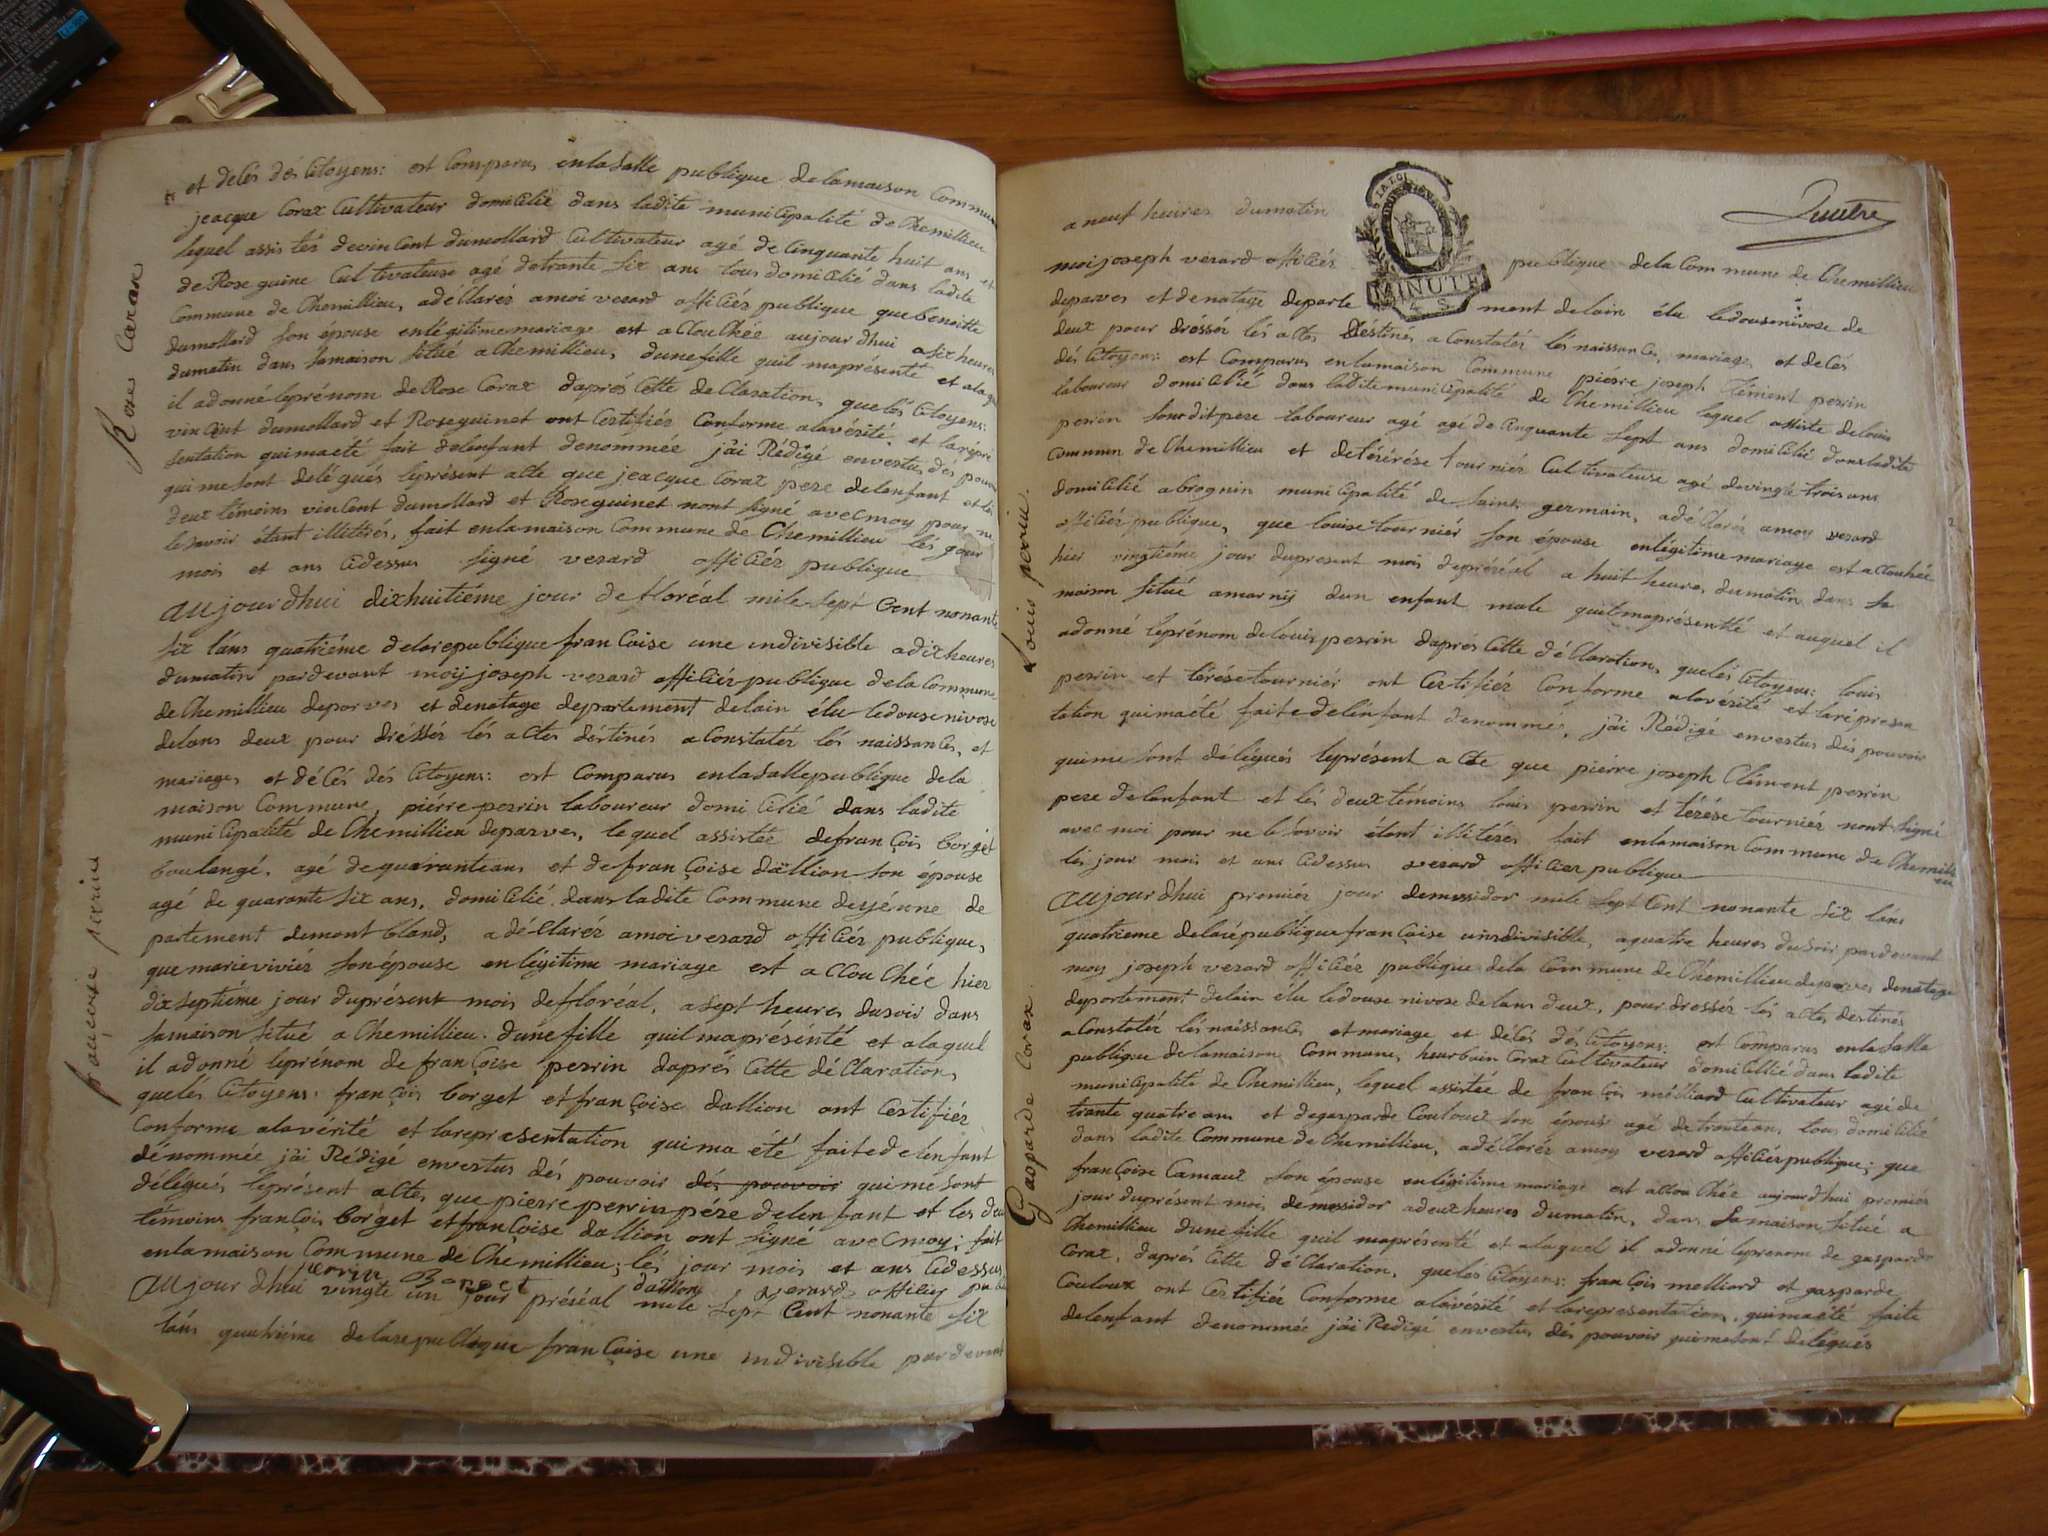 Rose Carax
françoise perrin
et delés dés Citoyens: est Comparus enlasalle publique delamaison Commune
jeacque Corax Cultivateur domicilié dans ladite municipalité de Chemillieu
lequel assistés devincent dumollard Cultivateur agé de Cinquante huit ans et
de Rose guinet Cultivateuse agé detrante six ans tous domicilié dans ladite
Commune de Chemillieu, adéllarér amoi verard officiér publique que benoitte
dumollard son épouse enlégitimemariage est allouchée aujourdhui asix heures
dumatin dans samaison situé a Chemillieu, dunefille quil maprésenté et alaquel
il adonné leprénom deRose Corax daprés Cette de Claration, que lés Citoyens:
vincent dumollard et Roseguinet ont Certifiér Conforme alavérité, et larépre
sentation quimaeté fait delenfant denommée jâi Rédigé envertus dés pouvoir
qui mesont delégués leprésent acte que jeacque Corax pere delenfant et lés
deux témoins vincent dumollard et Roseguinet nont signé avecmoy pour ne
lesavoir étant illitérés, fait enlamaison Commune de Chemillieu lés jour
mois et ans Cidessus signé verard officiér publique
aujourdhui dixhuitiéme jour de floréal mile sept Cent nonante
six láns quatriéme delarepublique françoise une indivisible adixheures
dumatin pardevant moÿ joseph verard officiér publique dela Commune
de Chemillieu deparves et denatage departement delain élu ledouse nivose
delans deux pour dréssér lés actes déstinés aConstatér lés naissances, et
mariages et délés dés Citoyens: est Comparus enlasallepublique dela
maison Commune, piérre perrin laboureur domicilié dans ladite
municipalité de Chemillieu deparves, lequel assistée defrançois borget
boulangé, agé dequaranteans et defrançoise dallion son épouse
agé de quarante six ans, domicilié dans ladite Commune deyénne de
partement demont bland, adéClarér amoi verard officiér publique,
que marieviviér son épouse enlégitime mariage est allouChée hier
dixseptiéme jour duprésent mois defloréal, asept heures dusoir dans
samaison situé a Chemillieu. dunefille quil maprésénté et alaquel
il adonné leprenom de françoise perrin daprés Cette dé Claration,
quelés Citoyens: françois borget etfrançoise dallion ont Certifiér
Conforme alavérité et larepresentation quima été faitedelénfant
dénommée jâi Rédigé envertus dés pouvoir dés pouvoir quimesont
délégués léprésent acte, que pierre perrin pére delénfant et les deux
témoins françois borget etfrançoise dallion ont signé avecmoy; fait
enlamaison Commune de Chemillieu; lés jour mois et ans Cidessus
perrin Borget dallion verard officiér publique
aujourdhui vingte un jour préréal mile sept Cent nonante six
láns quatriéme delarepublique françoise une indivisible pardevant
Louis perrin.
Gasparde Corax.
a neuf heures dumatin
LA LOI
MINUTE
moi joseph verard officiér publique dela Commune de Chemillieu
deparves et denatage departement delain élu ledousenivose de
deux pour dréssér lés actes déstinés aConstatér lés naissances, mariages et delés
dés Citoyens: est Comparus enlamaison Commune piérre joseph Clément perrin
laboureur domicilié dans laditemunicipalité de Chemillieu lequel assisté delouis
perrin sondit pere laboureur agé agé de Cinquante sept ans domicilié dansladite
Commune de Chemillieu et detérése tourniér Cultivateuse agé devingte troisans
domicilié abrognin municipalité de saint germain, adéllarér amoy verard
officiér publique, que louise tourniér son épouse enlégitime mariage est allouhée
hier vingtiéme jour dupresent mois depréréal a huit heures dumatin dans sa
maison situé amarnij dun enfant male quilmaprésentté et auquel il
adonné leprénom delouis perrin daprés Cette déClaration, quelés Citoyens: louis
perrin et térése tourniér ont Certifiér Conforme alavérité et laréprésen
tation quimaété faite delénfant denommé, jâi Rédigé envertus dés pouvoir
quimesont délégués leprésent acte que piérre joseph Clément perrin
pere delenfant et lés deuxtémoins louis perrin et térése tourniér nont signé
avec moi pour ne lésavoir étant illitéres fait enlamaison Commune de Chemilli
eu
lés jour mois et ans Cidessus verard officiér publique
aujourdhui premiér jour demessidor mile sept Cent nonante six láns
quatrieme delarépublique françoise unindivisible, aquatre heures dusoir pardevant
moy joseph verard officiér publique dela Commune de Chémillieu deparves denatage
departement delain élu ledouse nivose delans deux, pour dressér lés actes destinés
aConstatér lés naissances et mariage et délés dés Citoyens: est Comparus enlasalle
publique delamaison Commune, heurbain Corax Cultivateur domicillié dans ladite
municipalité de Chemillieu, lequel assistée de françois mélliard Cultivateur agé de
trante quatre ans et degasparde Couloux son épouse agé detranteans, tous domicilié
dans ladite Commune de Chemillieu, adéllarér amoy verard officiér publique; que
françoise Camaux son épouse enlégitime mariage est allouchée aujourdhui premiér
jour duprésent mois demessidor adeuxheures dumatin, dans samaison situé a
Chemillieu dunefille quil maprésenté et alaquel il adonné leprenom de gasparde
Corax, daprés Cette déClaration, quelés Citoyens: françois melliard et gasparde
Couloux ont Certifiér Conforme alavérité et larepresentation quimaété faite
delenfant denommée jâi Redigé envertus dés pouvoir quimesont delégués